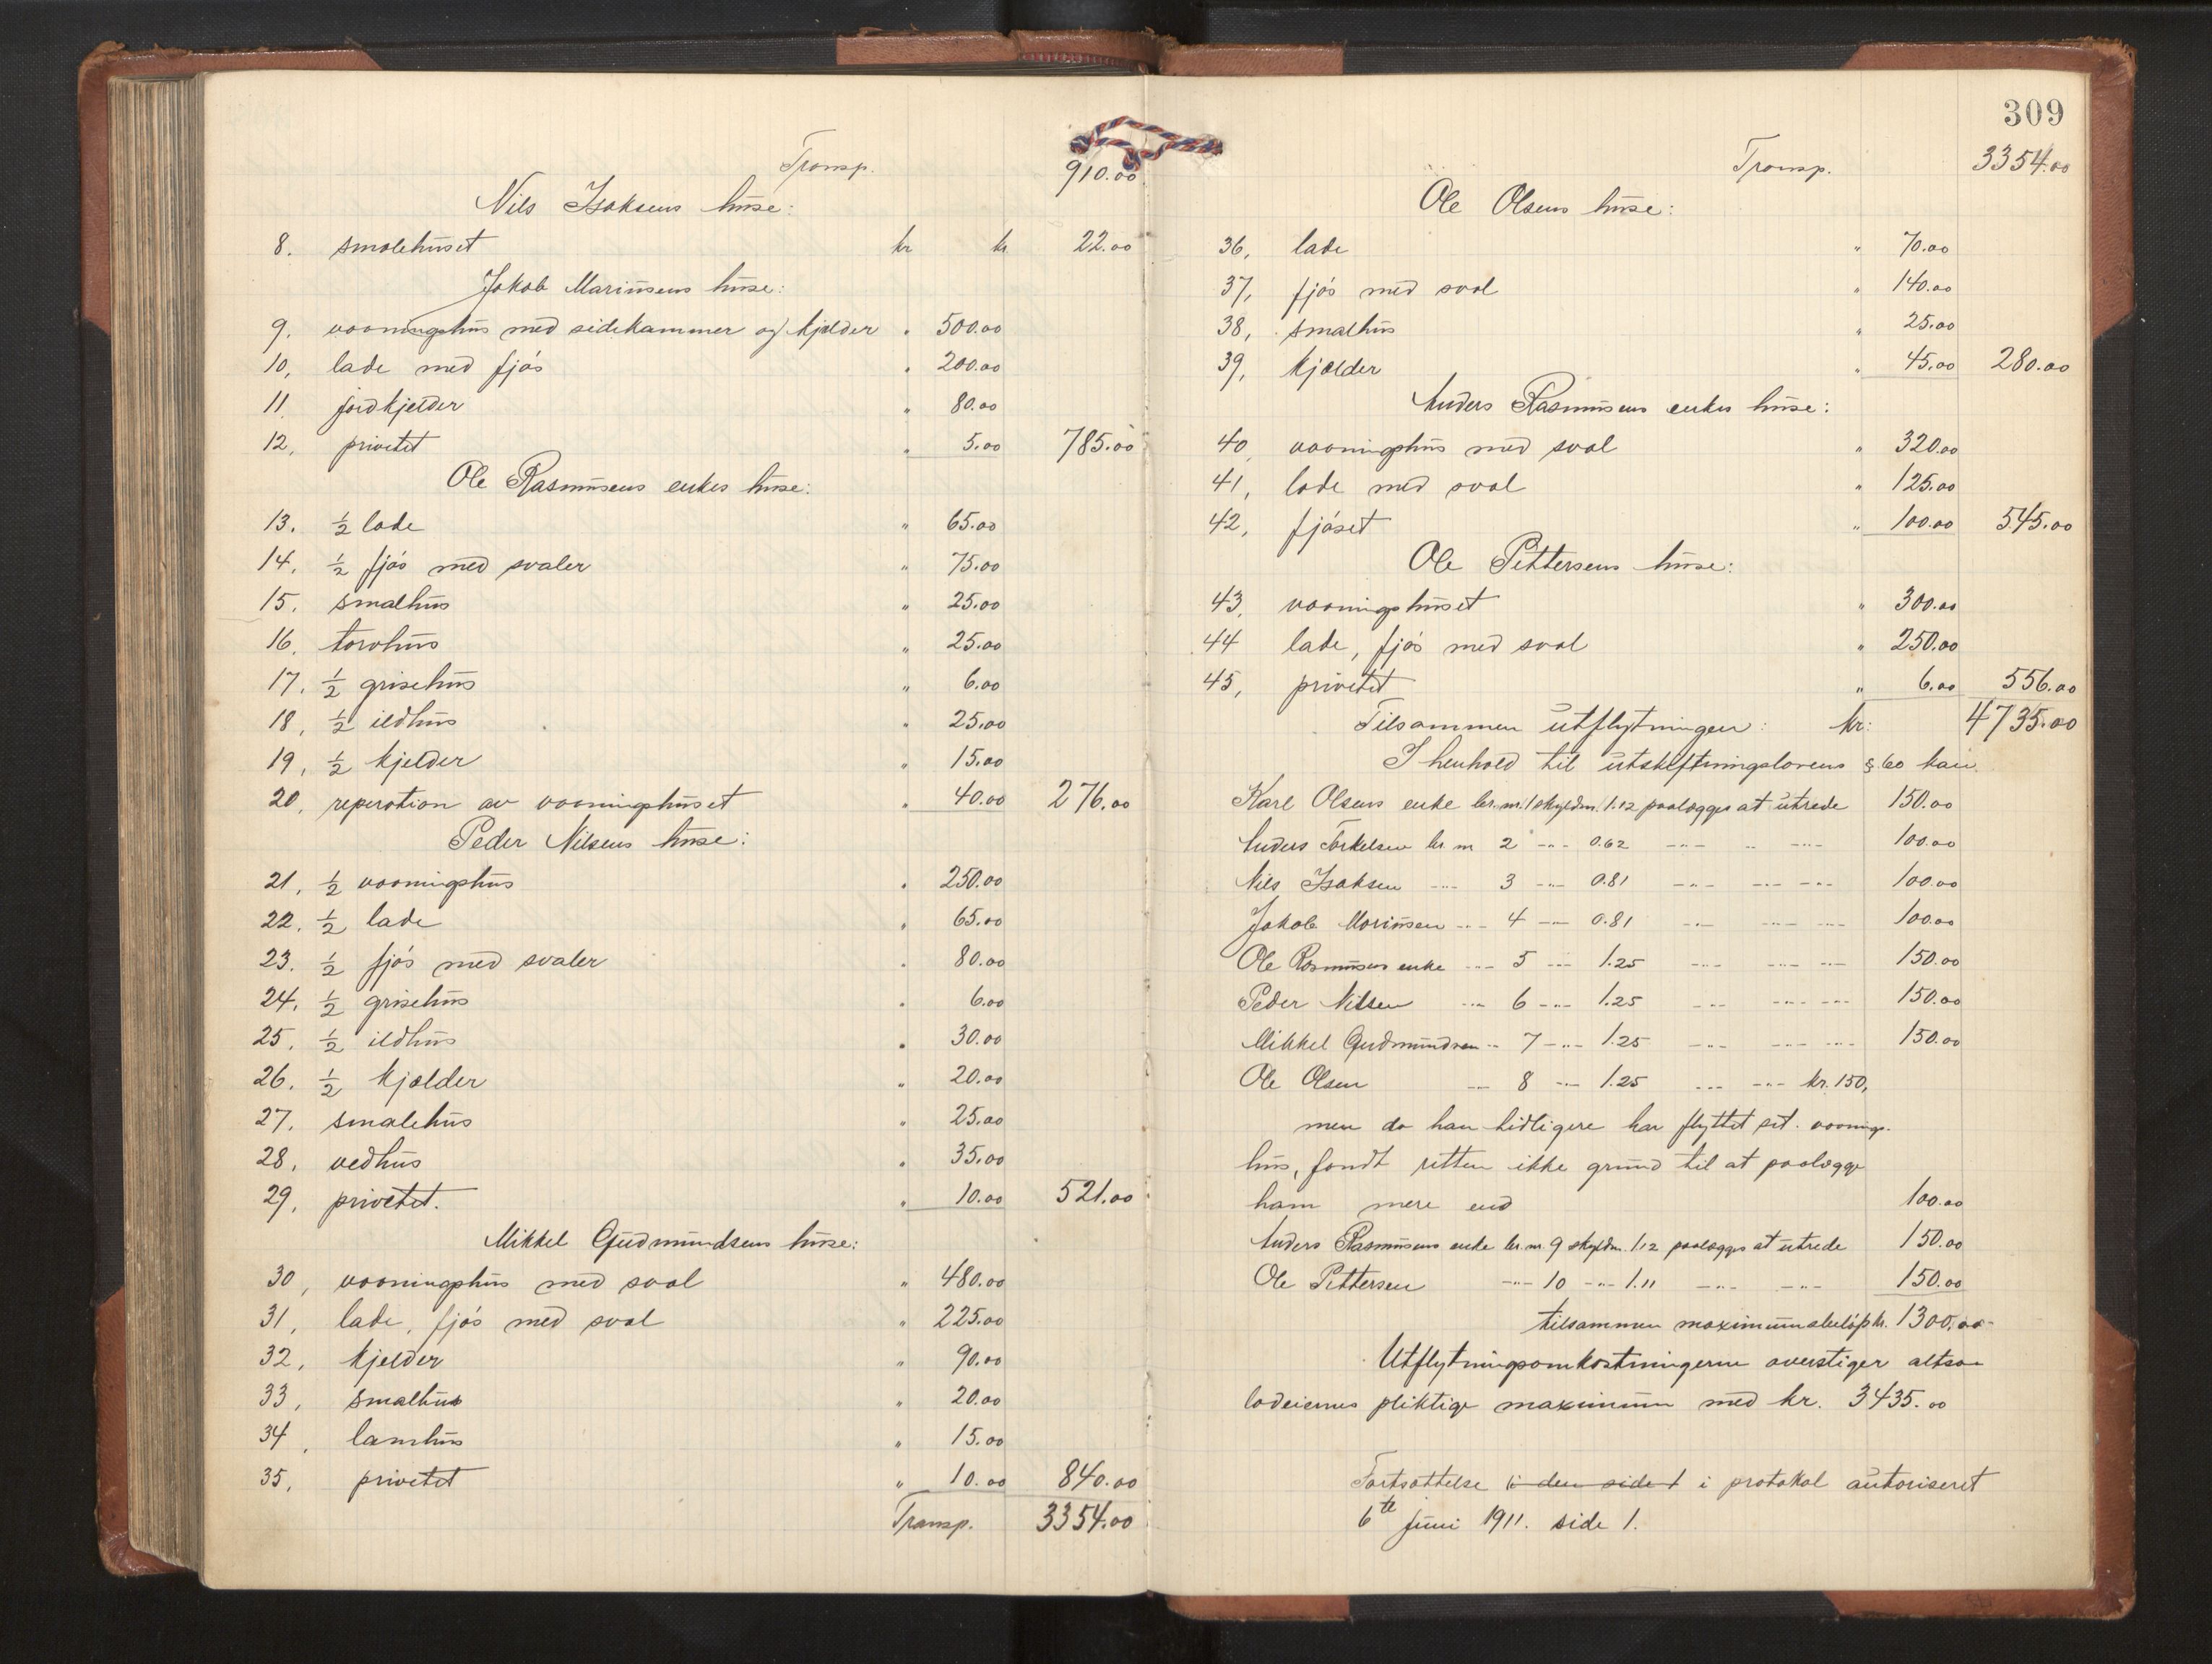 Transp. 910.00
Nils Isaksens huse:
8. smalehuset kr kr. 22.00
Jakob Mariusens huse:
9. vaaningshus med sidekammer og kjelder " 500.00
10, lade med fjós " 200.00
11. jordkjelder " 80.00
12, privetet " 5.00 785.00
Ole Rasmusens enkes huse:
13. ½ lade " 65.00
14. ½ fjós med svaler " 75.00
15. smalhus " 25.00
16. torvhus " 25.00
17. ½ grisehus " 6.00
18, ½ ildhus " 25.00
19, ½ kjelder " 15.00
20, reperation av vaaningshuset " 40.00 276.00
Peder Nilsens huse:
21, ½ vaaningshus " 250.00
22. ½ lade " 65.00
23. ½ fjós med svaler " 80.00
24, ½ grisehus " 6.00
25. ½ ildhus " 30.00
26. ½ kjælder " 20.00
27. smalehus " 25.00
28, vedhus " 35.00
29, privetet. " 10.00 521.00
Mikkel Gudmundsens huse:
30, vaaningshus med sval " 480.00
31, lade, fjós med sval " 225.00
32, kjelder " 90.00
33, smalhus " 20.00
34, lamhus " 15.00
35, privetet " 10.00 840.00
Transp. 3354.00
309
Transp. 3354.00
Ole Olsens huse:
36, lade " 70.00
37, fjós med sval " 140.00
38, smalhus " 25.00
39, kjælder " 45.00 280.00
Anders Rasmusens enkes huse:
40, vaaningshus med sval " 320.00
41, lade med sval " 125.00
42, fjóset " 100.00 545.00
Ole Pettersens huse:
43, vaaningshuset " 300.00
44 lade, fjós med sval " 250.00
45, privetet " 6.00 556.00
Tilsammen utflytningen: kr: 4735.00
I henhold til utskiftningslovens § 60 kan
Karl Olsens enke br. nr. 1 skyldm. 1.12 paalægges at utrede 150.00
Anders Torkelsen br. nr 2 -"- 0.62 -"- " -"- 100.00
Nils Isaksen -"- 3 -"- 0.81 -"- -"- -"- 100.00
Jakob Mariusen -"- 4 -"- 0.81 -"- -"- -"- 100.00
Ole Rasmusens enke -"- 5 -"- 1.25 -"- -"- -"- 150.00
Peder Nilsen -"- 6 -"- 1.25 -"- -"- -"- 150.00
Mikkel Gudmundsen -"- 7 -"- 1.25 -"- -"- -"- 150.00
Ole Olsen -"- 8 -"- 1.25 -"- -"- kr. 150,
men da han tidligere har flyttet sit vaanings-
hus, fandt retten ikke grund til at paalægge
ham mere end 100.00
Anders Rasmusens enke br. nr. 9 skyldm. 1.12 paalægges at utrede 150.00
Ole Pettersen -"- 10 -"- 1.11 -"- -"- 150.00
tilsammen maximumsbeløp kr. 1300,00-
Utflytningsomkostningerne overstiger altsaa
lodeiernes pliktige maximum med kr. 3435.00
Fortsættelse i den side 1 i protokol autoriseret
6te juni 1911. side 1.